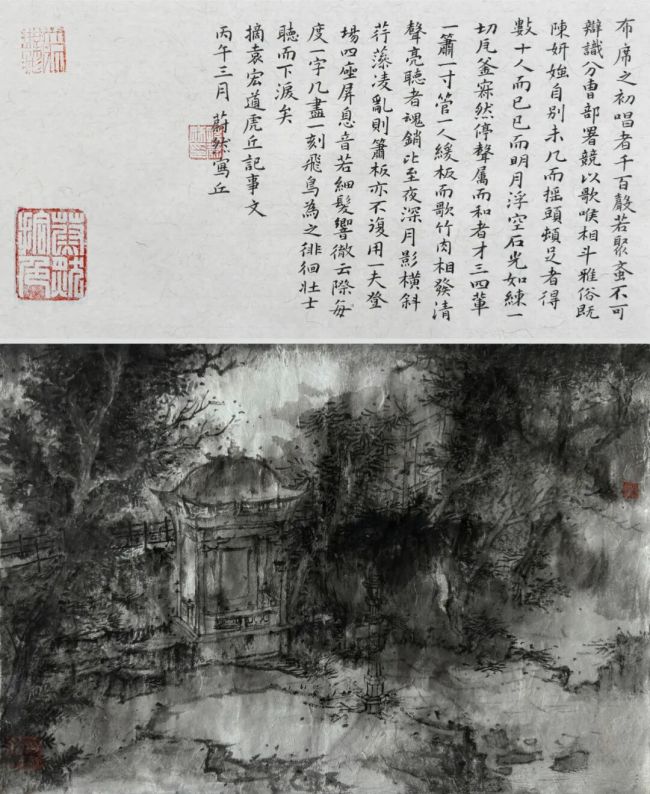 布席之初唱者千百聲若聚蚉不可
辯識分曹部署競以歌喉相斗雅俗既
陳妍媸自別未几而摇頭頓足者得
數十人而已已而明月浮空石光如練一
切瓦釜寂然停聲屬而和者才三四輩
一簫一寸管一人緩板而歌竹肉相發清
聲亮聽者魂銷比至夜深月影橫斜
荇藻凌亂則簫板亦不復用一夫登
場四座屏息音若細髮響徹云際每
度一字几盡一刻飛鳥為之徘徊壯士
聽而下淚矣
摘袁宏道虎丘記事文
丙午三月 蔚然寫丘